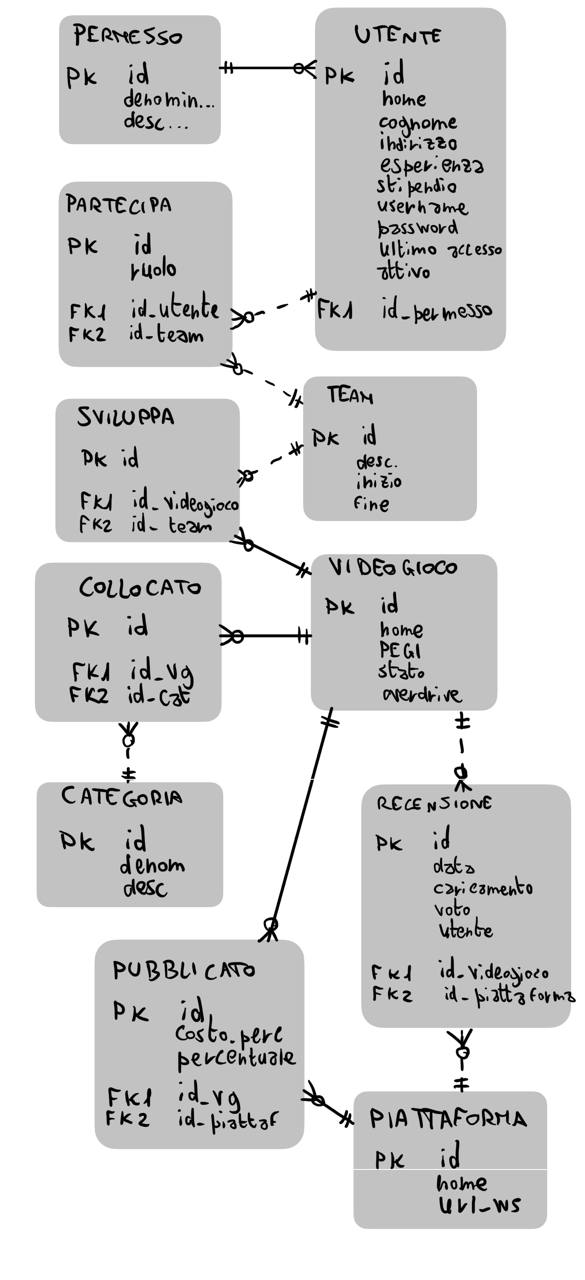 PERMESSO
PK id
denomin...
desc...
UTENTE
PK id
nome
cognome
indirizzo
esperienza
stipendio
username
password
ultimo accesso
attivo
FK1 id_permesso
PARTECIPA
PK id
ruolo
FK1 id_utente
FK2 id_team
TEAM
PK id
desc.
inizio
fine
SVILUPPA
PK id
FK1 id_videogioco
FK2 id_ team
VIDEOGIOCO
PK id
nome
PEGI
stato
overdrive
COLLOCATO
PK id
FK1 id_vg
FK2 id_cat
CATEGORIA
PK id
denom
desc
RECENSIONE
PK id
data
caricamento
voto
utente
FK1 id_videogioco
FK2 id_piattaforma
PUBBLICATO
PK id
costo_perc
percentuale
FK1 id_vg
FK2 id_piattaf
PIATTAFORMA
PK id
nome
url_ws